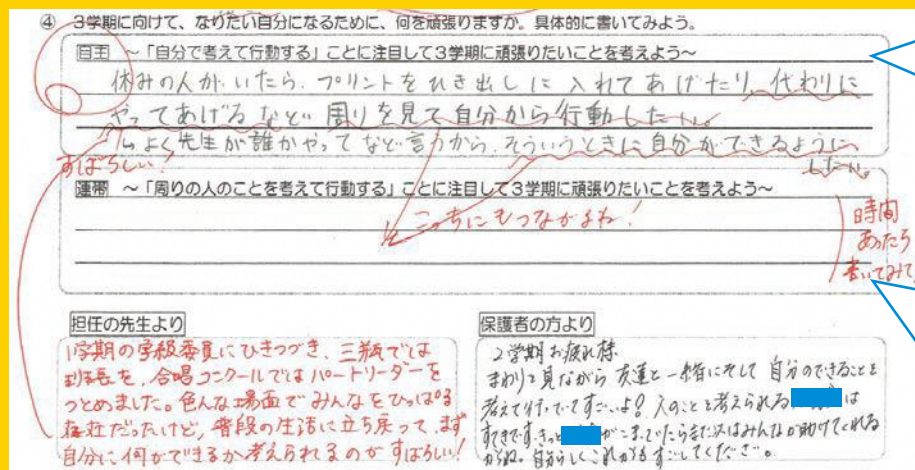 ④ 3学期に向けて、なりたい自分になるために、何を頑張りますか。具体的に書いてみよう。
自主 ～「自分で考えて行動する」ことに注目して3学期に頑張りたいことを考えよう～
休みの人がいたら、プリントをひき出しに入れてあげたり、代わりに
やってあげるなど周りを見て自分から行動したい。
よく先生が誰かやってなど言うから、そういうときに自分ができるように
したい。
すばらしい!
連帯 ～「周りの人のことを考えて行動する」ことに注目して3学期に頑張りたいことを考えよう～
こっちにもつながるね!
時間
あったら
書いてみて
担任の先生より
1学期の学級委員にひきつづき、三瓶では
班長を、合唱コンクールではパートリーダーを
つとめました。色んな場面でみんなをひっぱる
存在だったけど、普段の生活に立ち戻って、まず
自分に何ができるか考えられるのがすばらしい!
保護者の方より
2学期お疲れ様
まわりを見ながら友達と一緒にそして自分のできることを
考えて行っていてすごいよ!人のことを考えられる は
すてきです。きっと がこまっていたらまた次はみんなが助けてくれる
からね。自分らしくこれからもすごしてください。